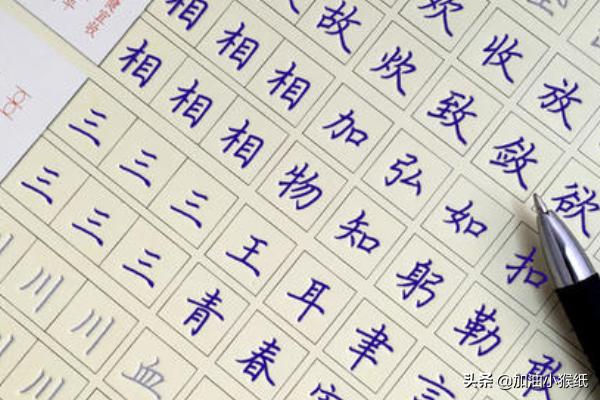 欢收放
故炊致敛欲
相相相加弘如扣
相相相物知躬勒敢
三三三王耳聿言
三三三青春
川川川血
川川
头条 @加油小猴纸